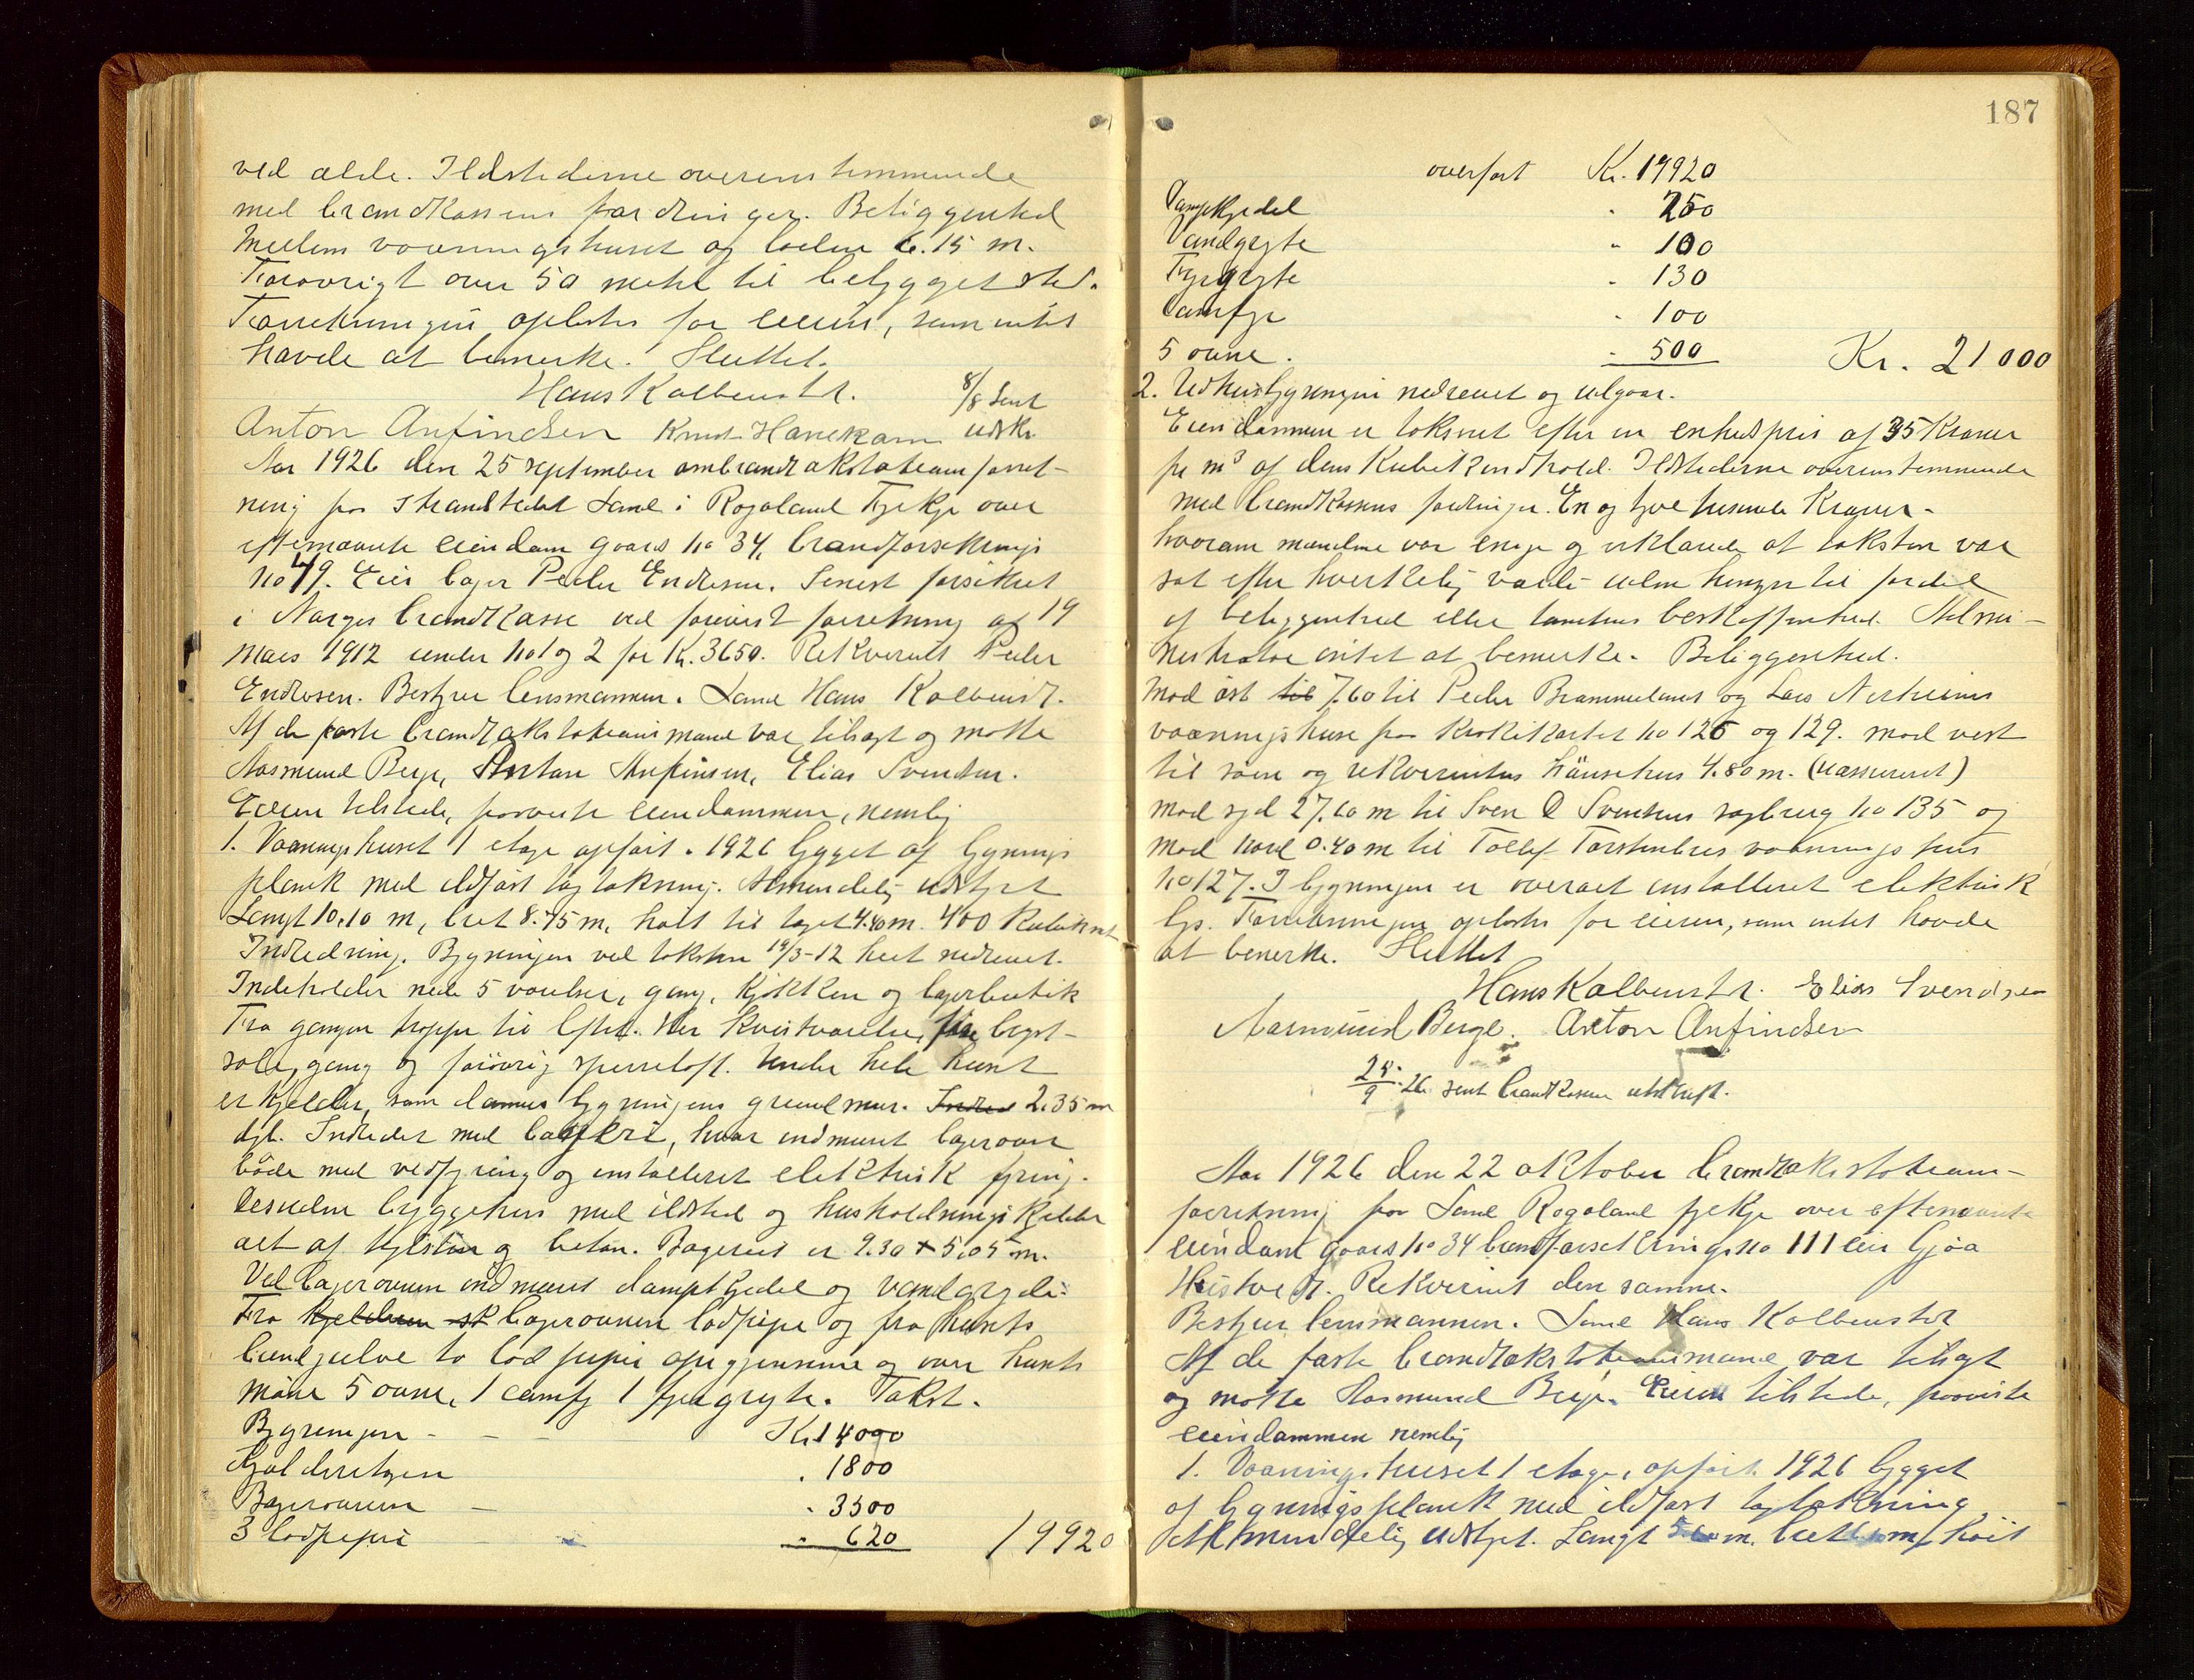 ved ælde. Ildstederne overensstemmende
med brandkassens fordringer. Beliggenhed
Mellem vaaningshuset og loden 6.15 m.
Forøvrigt over 50 meter til bebygget sted.
Forretningen oplæstes for eieren, som intet
havde at bemerke. Sluttet.
Hans Kolbenstvt. 8/8 Sent
Anton Anfindsen Knut Hanekam udskr.
Aar 1926 den 25 september ombrandtakstationsforret-
ning paa Strandstedet Sand i Rogaland Fylke over
efternævnte eiendom gaards no 34, brandforsikrings
no 79. Eier bager Peder Endresen. Senest forsikret
i Norges brandkasse ved forrige forretning af 19
Mars 1912 under no 1 og 2 for Kr. 3650. Rekvirent Peder
Endresen. Bestyrer lensmannen. Sand Hans Kolbenstvt.
Af de faste brandtakstationsmænd var tilsagt og møtte
Aasmund Berge, Anton Anfinsen, Elias Svendsen.
Eieren tilstede, paaviste eiendommen, nemlig
1. Vaaningshuset 1 etage opført 1926 bygget af bygnings
plank med ildfast tagtækning. Almindelig udstyret
Længt 10.10 m, bret 8.75 m, høit til taget 4.40 m. 400 Kubikmt
Indredning. Bygningen ved taksten 19/3-12 helt nedrevet.
Indeholder nede 5 værelser, gang, Kjøkken og bagerbutik
Fra gangen trapper til loftet. Her Kvistværelse, fire beget-
sale, gang og forøvrig sperreloft. Under hele huset
er Kjelder, som danner bygningens grundmur. Indred 2.35 m
dyb. Indredet med bageri, hvor indmuret bagerovn
både med vedfyring og installeret elektrisk fyring.
Desuden bryggehus med ildsted og husholdnings Kjelder
alt af kultsten og beton. Bageriet er 9.30 + 5.05 m.
Ved bagerovnen indmuret dampkjedel og vandgryde.
Fra Kjelderen st bagerovnen lodpipe og fra husets
bund selve to lodpiper op igjennem og over husets
møne 5 ovne, 1 camfy 1 fyrgryte. Takst.
Bygningen - - Kr. 14000
Kjelderetagen - . 1800
Bagerovnen - . 3500
3 lodpiper - . 620 19920
187
overført Kr. 19920
Dampkjedel . 250
Vandgryte . 100
Fyrgryte . 130
Camfyr . 100
5 ovne. . 500 Kr. 21000
2. Udhusbygningen nedrevet og udgaar.
Eiendommen er taksert efter en enhedspris af 35 Kroner
pr m³ af dens Kubikkindhold. Ildstederne overensstemmende
med brandkassens fordringer. En og tyve tusinde Kroner -
hvorom mændene var enige og erklærede at taksten var
sat efter hverkelig værdi uden hensyn til fordel
af beliggenhed eller tomtens beskaffenhed. Admi-
nistrator intet at bemerke. Beliggenhed.
Mod øst til 7.60 til Peder Brommelands og Lars Nerheims
vaaningshuse paa Krokikartet no 126 og 129. mod vest
til søen og rekvirentens hønsehus 4.80 m. (uassureret)
Mod syd 27.60 m til Sven O Svenhus sagbrug no 135 og
Mod nord 0.40 m til Tollef Torstenbøes vaanings hus
no 127. I bygningen er overalt installeret elektrisk
lys. Forretningen oplæstes for eieren, som intet havde
at bemerke. Sluttet
Hans Kolbenstvt. Elias Svendsen
Aasmund Berge. Anton Anfindsen
28/9-26 sent brandkassen utskrift.
Aar 1926 den 22 oktober brandtakstations-
forretning paa Sand Rogaland fylke over eftenævnte
eiendom gaards no 34 brandforsikrings no 111 eier Gjøa
Rekvirent den samme.
Bestyrer lensmannen. Sand Hans Kolbenstvt
Af de faste brandtakstationsmænd var tilsagt
og møtte Aasmund Berge. Eieren tilstede, paaviste
eiendommen nemlig
1. Vaaningshuset 1 etage, opført 1926 bygget
af bygningsplank med ildfast tagtækning
Almindelig udstyr. Længt m. bret m, høit